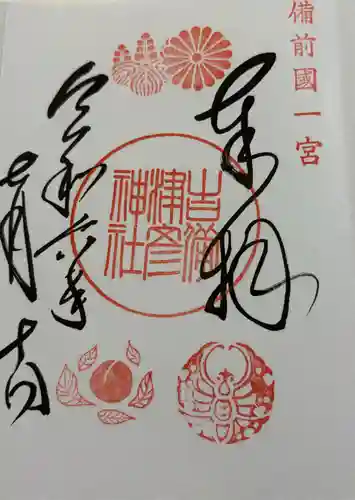 備前國一宮
奉拝
吉備
津彦
神社
令和六年
月
日